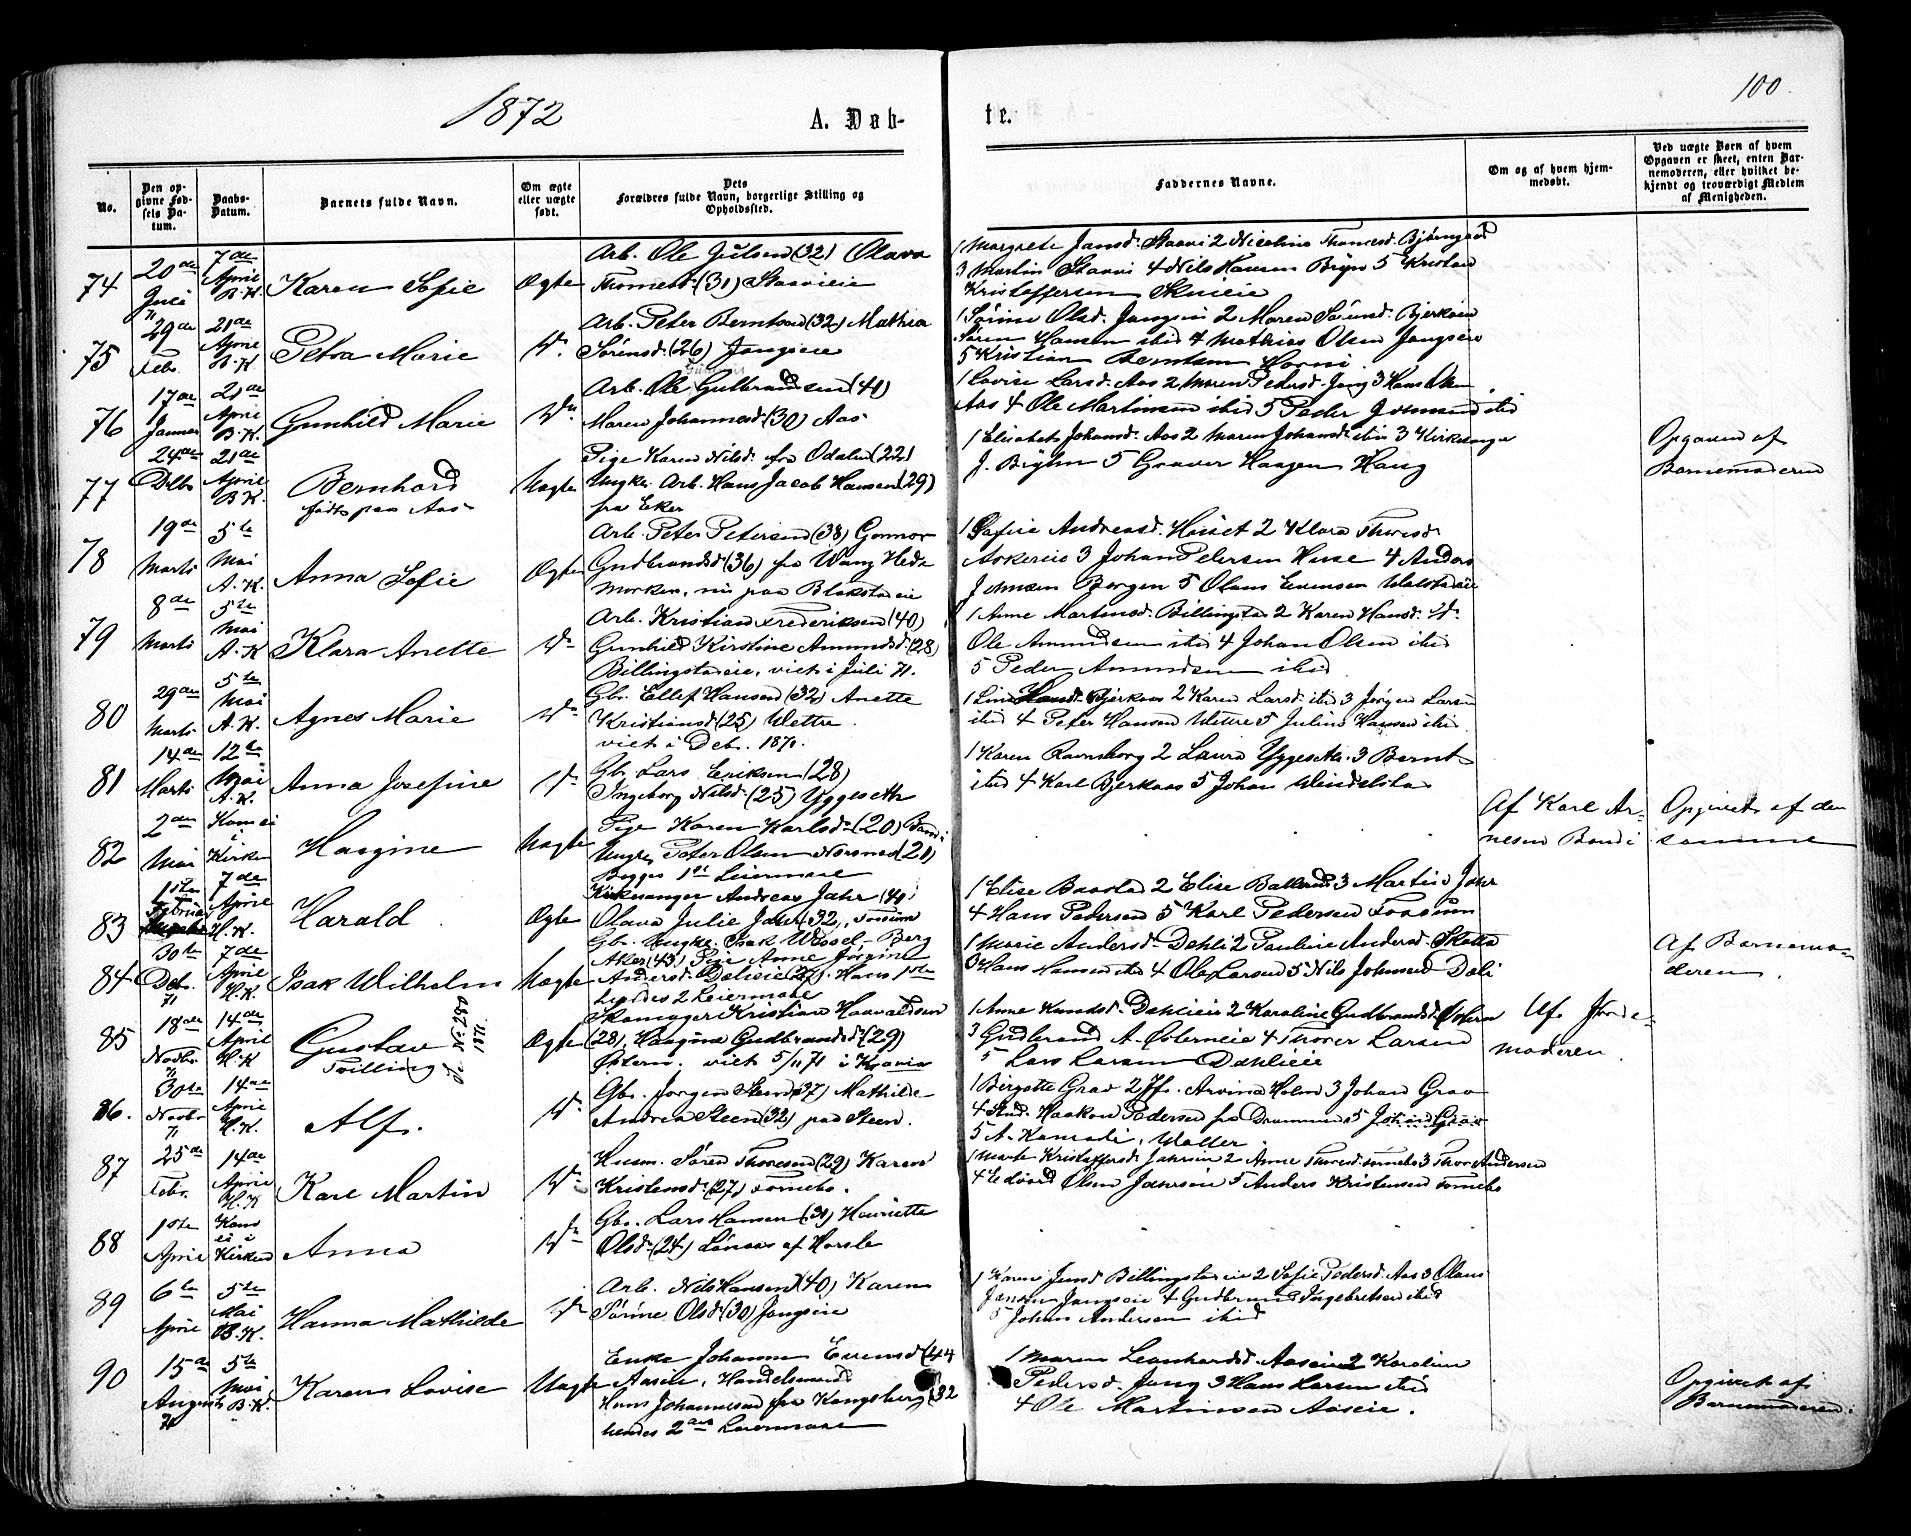 1872
100
A. Døb-
te.
No.
Den op-
givne Fød-
sels Da-
tum.
Daabs-
Datum.
Barnets fulde Navn.
Om ægte
eller uægte
født.
Dets
Forældres fulde Navn, borgerlige Stilling og
Opholdssted.
Faddernes Navne.
Om og af hvem hjem-
medøbt.
Ved uægte Børn af hvem
Opgaven er skeet, enten Bar-
nemoderen, eller hvilket be-
kjendt og troværdigt Medlem
af Menigheden.
74
20de
Juli
71
7de
April
B.K.
Karen Sofie
Ægte
Arb. Ole Julsen (32) Olava
Thomesd. (31) Staavieie
1 Margrete Jansd. Staavi 2 Nicolina Thomesd. Bjørngaard
3 Martin Staavi 4 Nils Hansen Bryn 5 Kristian
Kristoffersen Skuieie
75
29de
Febr.
21de
April
B.K.
Petra Marie
Do.
Arb. Peter Berntsen (32) Mathea
Sørensd. (26) Jongseie
1 Sørine Olsd. Jongseie 2 Maren
Søren Hansen ibid 4 Mathias Olsen Jongseie
5 Kristian Berntsen
76
17de
Januar
21de
April
B.K.
Gunhild Marie
Do
Arb. Ole Gulbrandsen (40)
Maren Johannesd. (30) Aas
1 Lovise Larsd. Aas 2 Maren Pedersd. Jong 3 Hans Olsen
Aas 4 Ole Martinsen ibid 5 Peder Johnsen ibid
77
24de
Decbr
21de
April
B.K.
Bernhard
født paa Aas
Uægte
Pige Karen Nilsd. fra Odalen (22)
Ungk. Arb. Hans Jacob Hansen (29)
fra Eker
1 Elisabet Johansd. Aas 2 Maren Johansd. ibid 3 Kirkesanger
J. Bryhn 5 Graver Haagen Haug
Opgaven af
Barnemoderen
78
19de
Marts
5te
Mai
A.K.
Anna Sofie
Ægte
Arb. Peter Petersen (38) Gunnor
Gudbrandsd (36) fra Wang Hede
marken, nu paa Blakstadeie
1 Sofie Andreasd. 2 Klara Thoresd.
Askereie 3 Johan Petersen 4 Anders
Johnsen Borgen 5 Olaus Evensen
79
8de
Marts
5te
Mai
A.K
Klara Anette
Do
Arb. Kristian Frederiksen (40)
Gunhild Kirstine Amundsd. (28)
Billingstadeie, viet i Juli 71.
1 Anne Martinsd. Billingstad 2 Karen Hansd. Do
Ole Amundsen ibid 4 Johan Olsen ibid
5 Peder Amundsen ibid
80
29de
Marts
5te
Mai
A.K.
Agnes Marie
Do
Gbr. Ellef Hansen (32) Anette
Kristiansd. (25) Wettre
viet i Decbr. 1871.
1 Line Hansd. Bjerkaas 2 Karen Larsd. ibid 3 Jørgen Larsen
ibid 4 Peter Hansen Wettre 5 Julius Hansen ibid
81
14de
Marts
12te
Mai
A.K.
Anna Josefine
Do
Gbr. Lars Eriksen (28)
Ingeborg Nilsd. (25) Yggeseth
1 Karen Ravnsborg 2 Laura Yggeseth 3 Bernt
ibid 4 Karl Bjerkaas 5 Johan Windelstad
82
2den
Mai
Kom ei
i
Kirken
Hasgine
Uægte
Pige Karen Karlsd. (20) Bondi
Ungk. Peter Olsen (21)
Begges 1ste Leiermaal
Af Karl Ar-
nesen Bondi
Opgivet af den
samme
83
1ste
Februar
7de
April
H.K.
Harald
Ægte
Kirkesanger Andreas Jahr (40)
Olava Julie Jahr (32) Fossum
1 Elise Bavstad 2 Elise Ballerud 3 Martin Jahr
4 Hans Pedersen 5 Karl Pedersen Fossum
84
30te
Decbr.
71
7de
April
H.K.
Isak Wilhelm
Uægte
Gbr. Ungk. Isak Wessel, Berg
Aker (43) Pige Anne Jørgine
Andersd. Dalieie (27). Hans 1ste
hendes 2 Leiermaal
1 Marie Andersd. Dehli 2 Pauline Andersd. Skotta
3 Hans Hansen ibid 4 Ole Larsen 5 Nils Johnsen Dæli
Af Barnemo-
deren.
85
18de
Novbr.
71
14de
April
H.K
Gustav
Tvilling
Ægte
Skomager Kristian Haavaldsen
(28), Haagine Gudbrandsd (29)
Østern. viet 5/11 71 i
1 Anne Knudsd. Dahlieie 2 Karoline Gudbrandsd. Østern
3 Gudbrand A. Østerneie 4 Thorer Larsen
5 Lars Larsen Dahlieie
Af Jorde-
moderen.
86.
30te
Novbr
71
14de
April
H.K.
Alf.
Do.
Gbr. Jørgen Steen (37) Mathilde
Andrea Steen (32) paa Steen.
1 Birgitte Grav 2 Jfr. Arvina Holm 3 Johan Grav
4 Stud. Haakon Pedersen fra Drammen 5 Johan Grav
87
25de
Febr.
14de
April
H.K
Karl Martin
Do
Husm. Søren Thoresen (29) Karen
Kristensd. (27) Fornebo.
1 Marte Kristoffersd. 2 Anne Thoresd. Fornebo 3 Thor Andersen
4 Edvard Olsen 5 Anders Kristensen Fornebo
88
1ste
April
Kom
ei i
Kirken
Anna
Do
Gbr. Lars Hansen (30) Henriette
Olsd. (24) Lønaas af Horsle
89
6te
April
5te
Mai
B.K.
Hanna Mathilde
Do
Arb. Nils Hansen (40) Karen
Sørine Olsd (30) Jongseie
1 Karen Jensd Billingstadeie 2 Sofie Pedersd. Aas 3 Olaus
Jansen Jongseie 4 Gudbrand Ingebretsen ibid
5 Johan Andersen ibid
90
15de
August
71
5te
Mai
B.K.
Karen Lovise
Uægte
Enke Johanne Evensd (44
Aaseie, Handelsmand
Hans Johannesen fra Kongsberg (32
hendes 2det Leiermaal
1 Maren Leonhardsd. Aaseie 2 Karoline
Pedersd. Jong 3 Hans Larsen ibid
4 Ole Martinsen Aaseie.
Opgivet af
Barnemoderen.